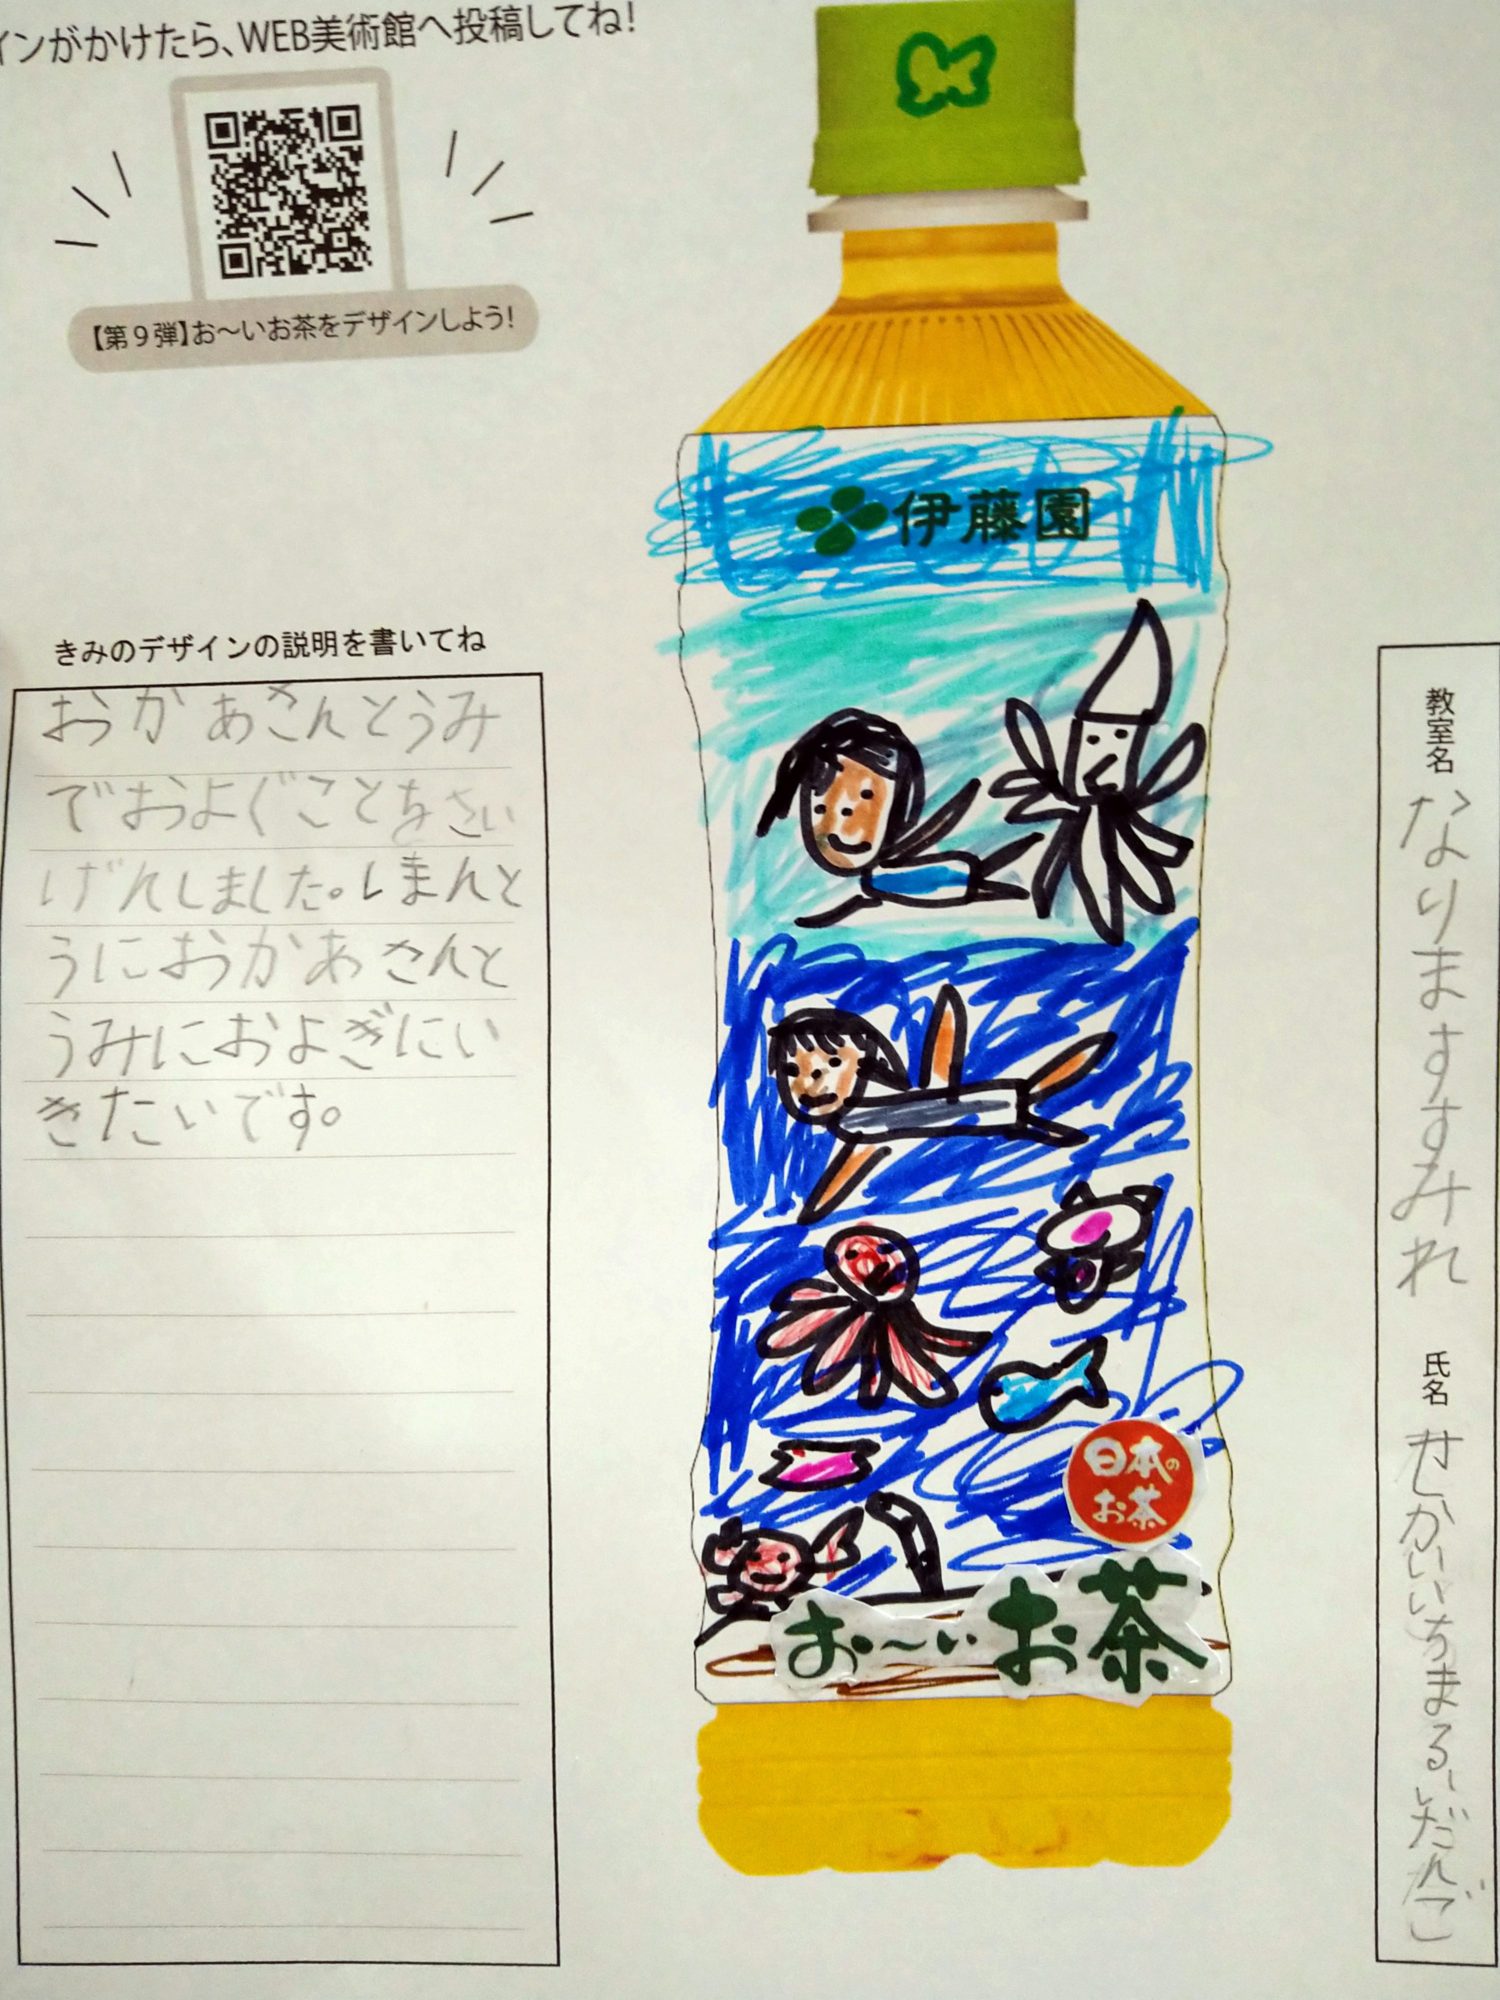 インがかけたら、WEB美術館へ投稿してね!
【第9弾】お～いお茶をデザインしよう!
きみのデザインの説明を書いてね
おかあさんとうみ
でおよぐことをさい
げんしました。しまんと
うにおかあさんと
うみにおよぎにい
きたいです。
伊藤園
日本の
お茶
お～いお茶
教室名
なりますすみれ
氏名
せかいいちまるいだんご